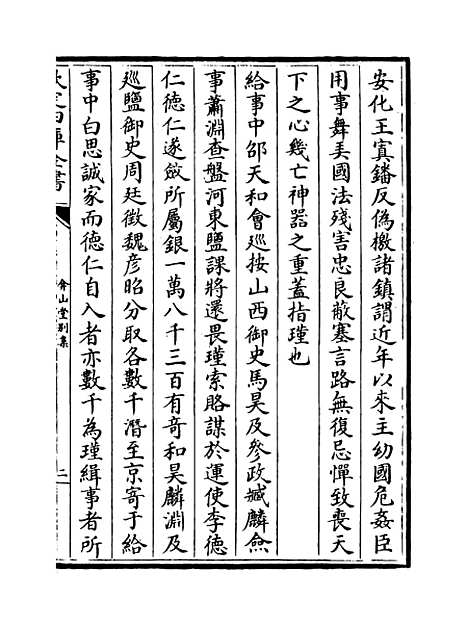 安化王寘鐇反偽檄諸鎮謂近年以來主幼國危姦臣
用事舞美國法殘害忠良蔽塞言路無復忌憚致喪天
下之心幾亡神器之重蓋指瑾也
給事中邵天和會廵按山西御史馬昊及參政臧麟僉
事蕭淵查盤河東鹽課將還畏瑾索賂謀於運使李德
仁德仁遂斂所屬銀一萬八千三百有竒和昊麟淵及
廵鹽御史周廷徴魏彦昭分取各數千潛至京寄于給
事中白思誠家而德仁自入者亦數千為瑾緝事者所
欽定四庫全書
弇山堂别集
二